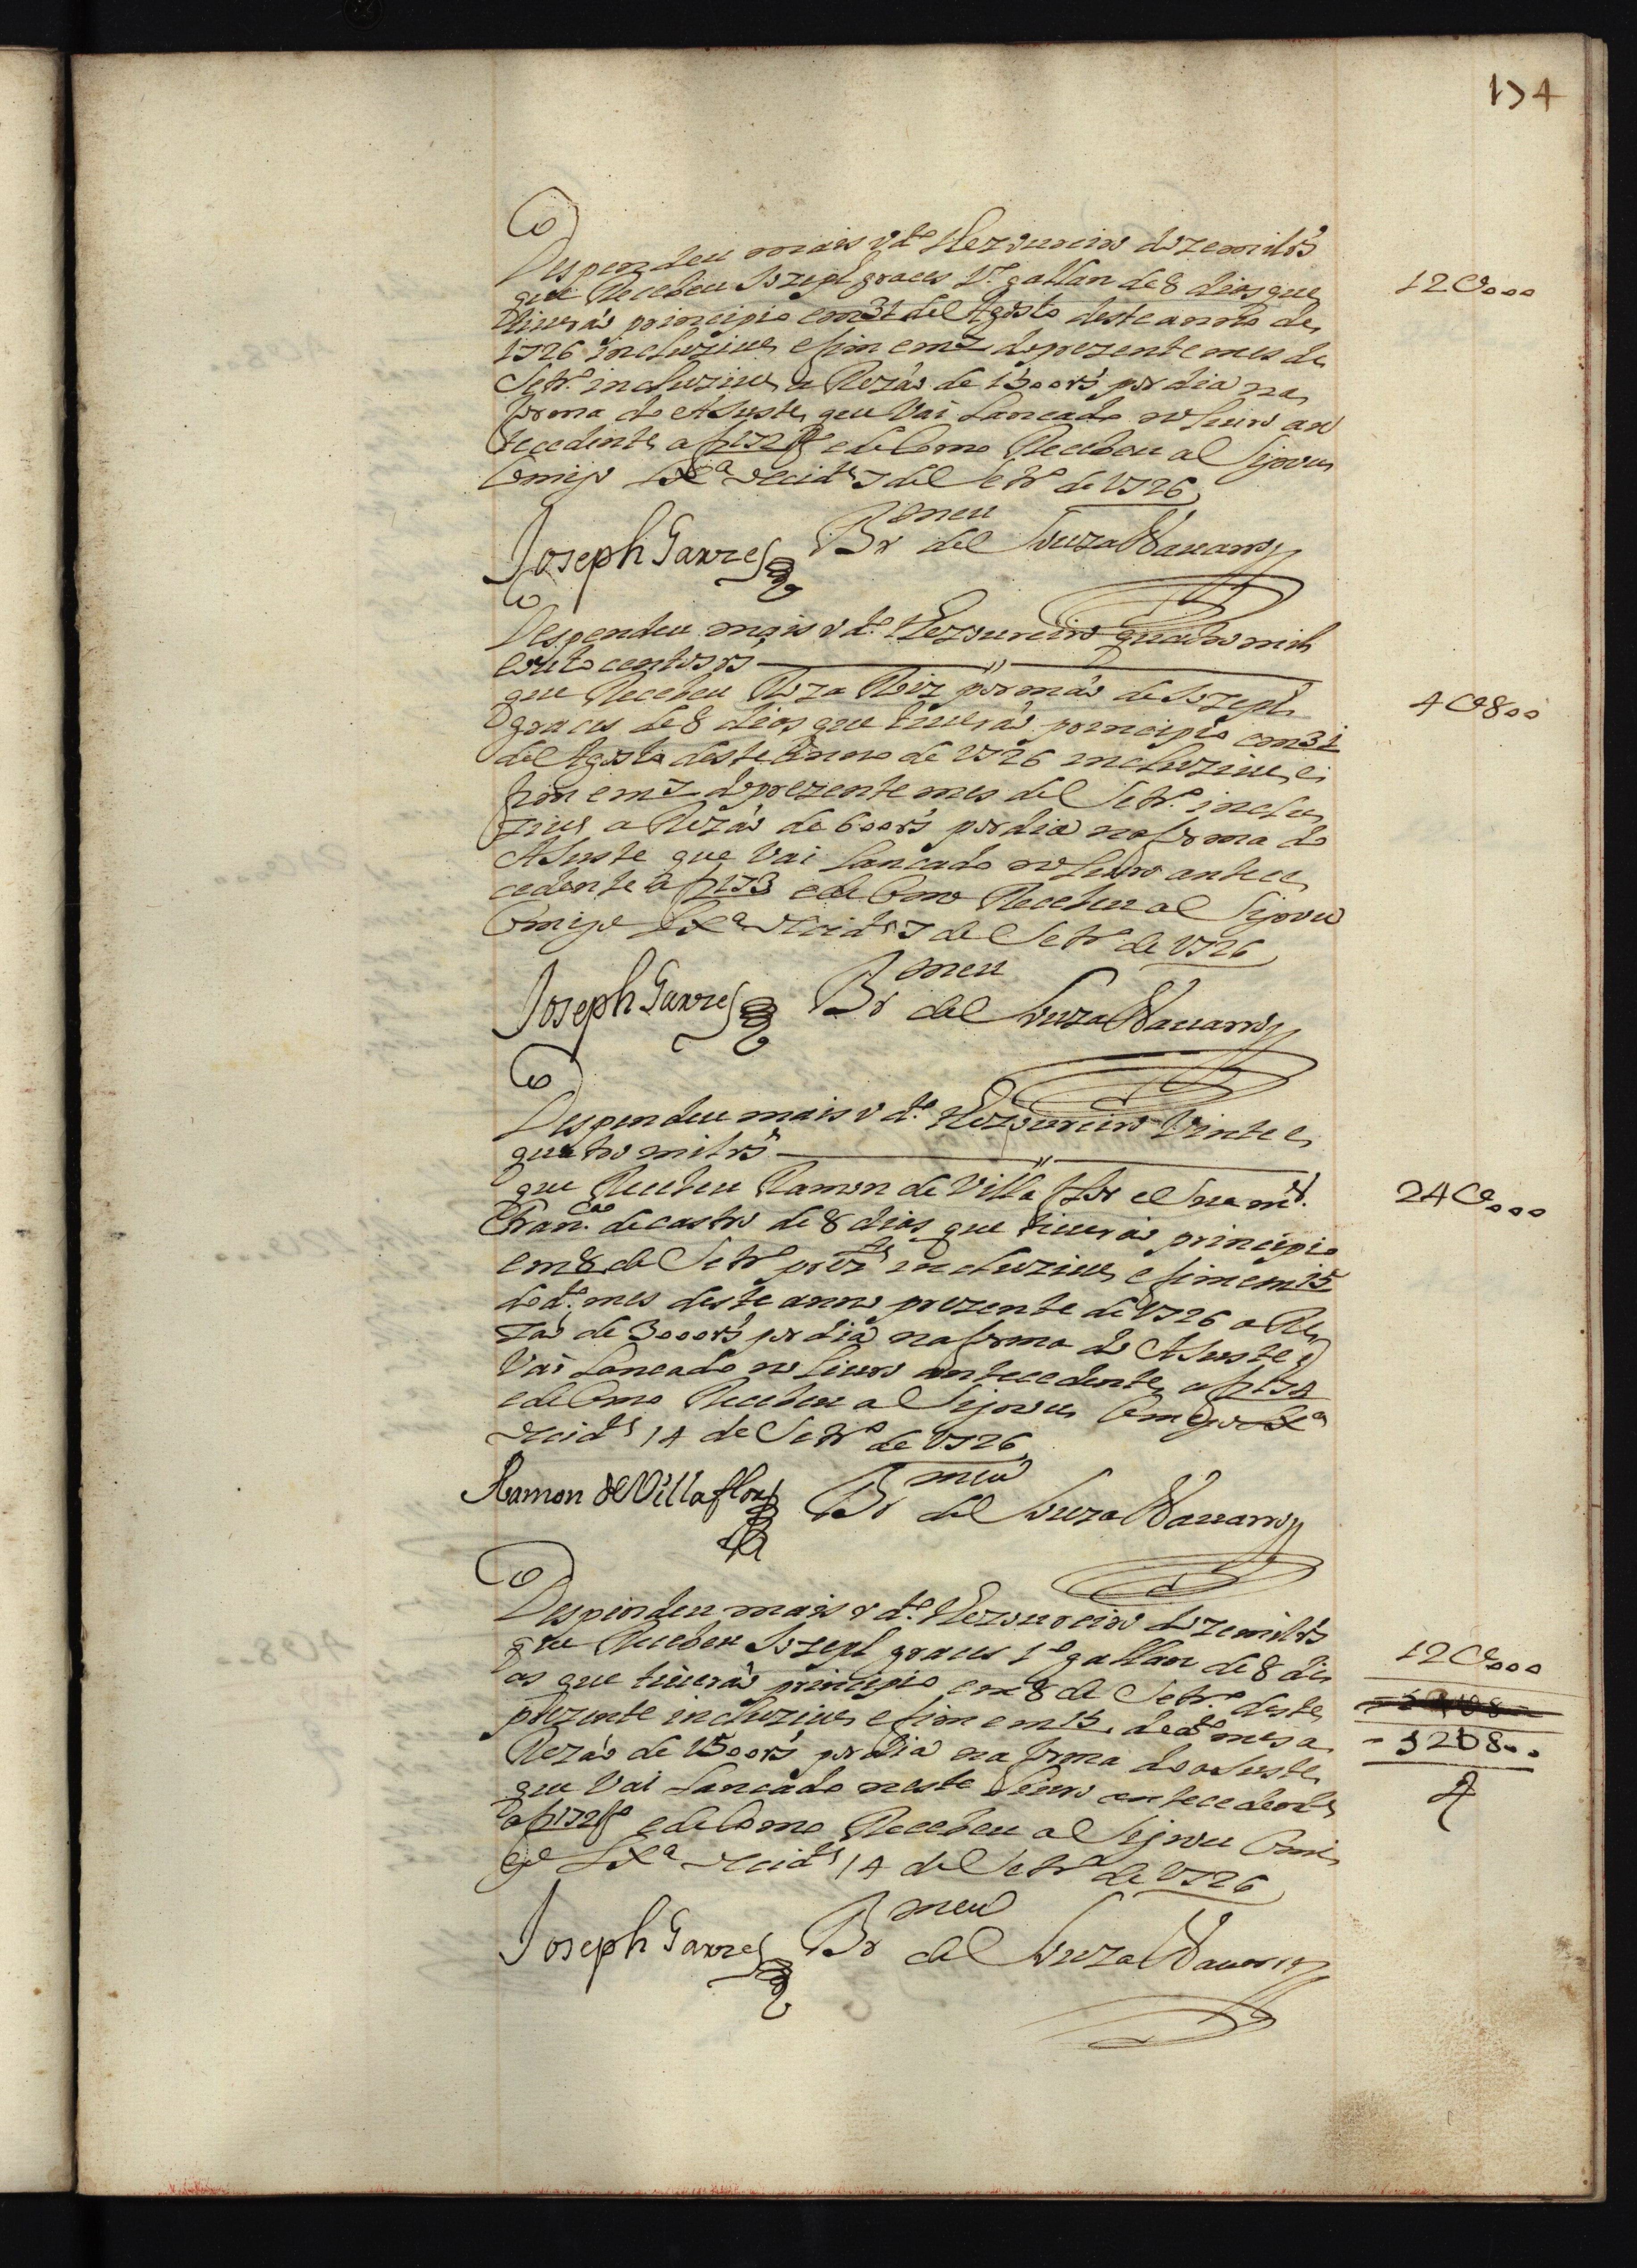 174
Despendeu mais o d.º Thezoureiro doze mil rs
que Recebeu Jozeph graces 1.º gallan de 8 dias que
tiuerão principio em 31 de Agosto deste anno de
1726 incluziue e fim em 7 do prezente mes de
Setr.º incluziue a Rezão de 1500 rs por dia na
forma do Ajuste que Vai Lancado no Liuro an
tecedente a f 172 e de Como Recebeu asignou
Comigo Lx.ª occid.al 7 de Setr.º de 1726
12U000
Joseph Garces
Bermeu de Souza Nauarro
Despendeu mais o d.º Thezoureiro quatro mil
e outo centos rs
que Recebeu Roza Roiz por mão de Jozeph
graces de 8 dias que tiuerão principio em 31
de Agosto deste Anno de 1726 incluziue e
fim em 7 do prezente mes de Setr.º inclu
ziue a Rezão de 600 rs por dia na forma do
Ajuste que Vai Lancado no Liuro antece
cedente a f 173 e de Como Recebeu asignou
Comigo Lx.ª occid.al 7 de Setr.º de 1726
4U800
Joseph Garces
Bermeu de Souza Nauarro
Despendeu mais o d.º Thezoureiro Vinte e
quatro mil rs
que Recebeu Ramon de Villa flor e sua m.er
Fran.ca de castro de 8 dias que tiuerão principio
em 8 de Setr.º prez.te incluziue e fim em 15
do d.º mes deste anno prezente de 1726 a Re
zão de 3000 rs por dia na forma do Ajuste q
Vai Lancado no Liuro antecedente a f 174
e de Como Recebeu asignou Comigo Lx.ª
occid.al 14 de Setr.º de 1726
24U000
Ramon de Villaflor
Bermeu de Souza Nauarro
Despendeu mais o d.º Thezoureiro doze mil rs
que Recebeu Jozeph graces 1.º gallan de 8 di
as que tiuerão principio em 8 de Setr.º deste
prezente incluziue e fim em 15 do d.º mes a
Rezão de 1500 rs por dia na forma do ajuste
que Vai Lancado neste Liuro antecedente
a f 172 e de Como Recebeu asignou Comi
go Lx.ª occid.al 14 de Setr.º de 1726
12U000
52U800
Joseph Garces
Bermeu de Souza Nauarro